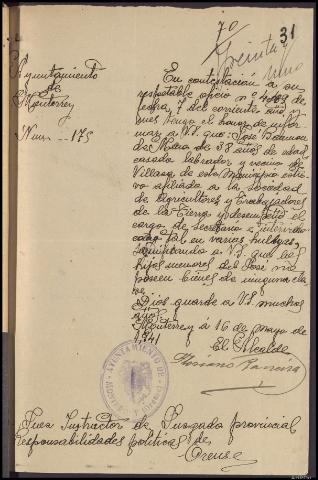 70
31
Treinta y
uno
Ayuntamiento
de
Monterrey
Num. 175
En contestación a su
respetable oficio nº
fecha 7 del corriente año
mes tengo el honor de infor
mar a V.S. que: José
de 38 años de edad
casado labrador, y vecino de
Villaza de este Municipio estu
vo afiliado a la Sociedad
de Agricultores y Trabajadores
de la Tierra y desempeñó el
cargo de Secretario e intervino
como tal en varias huelgas,
significando a V.S. que los
hijos menores del José no
poseen bienes de ninguna cla
se.
Dios guarde a V.S. muchos
años.
Monterrey á 16 de mayo de
1941
El Alcalde
AYUNTAMIENTO DE
Juez Instructor de Juzgado provincial
responsabilidades políticas de
Orense